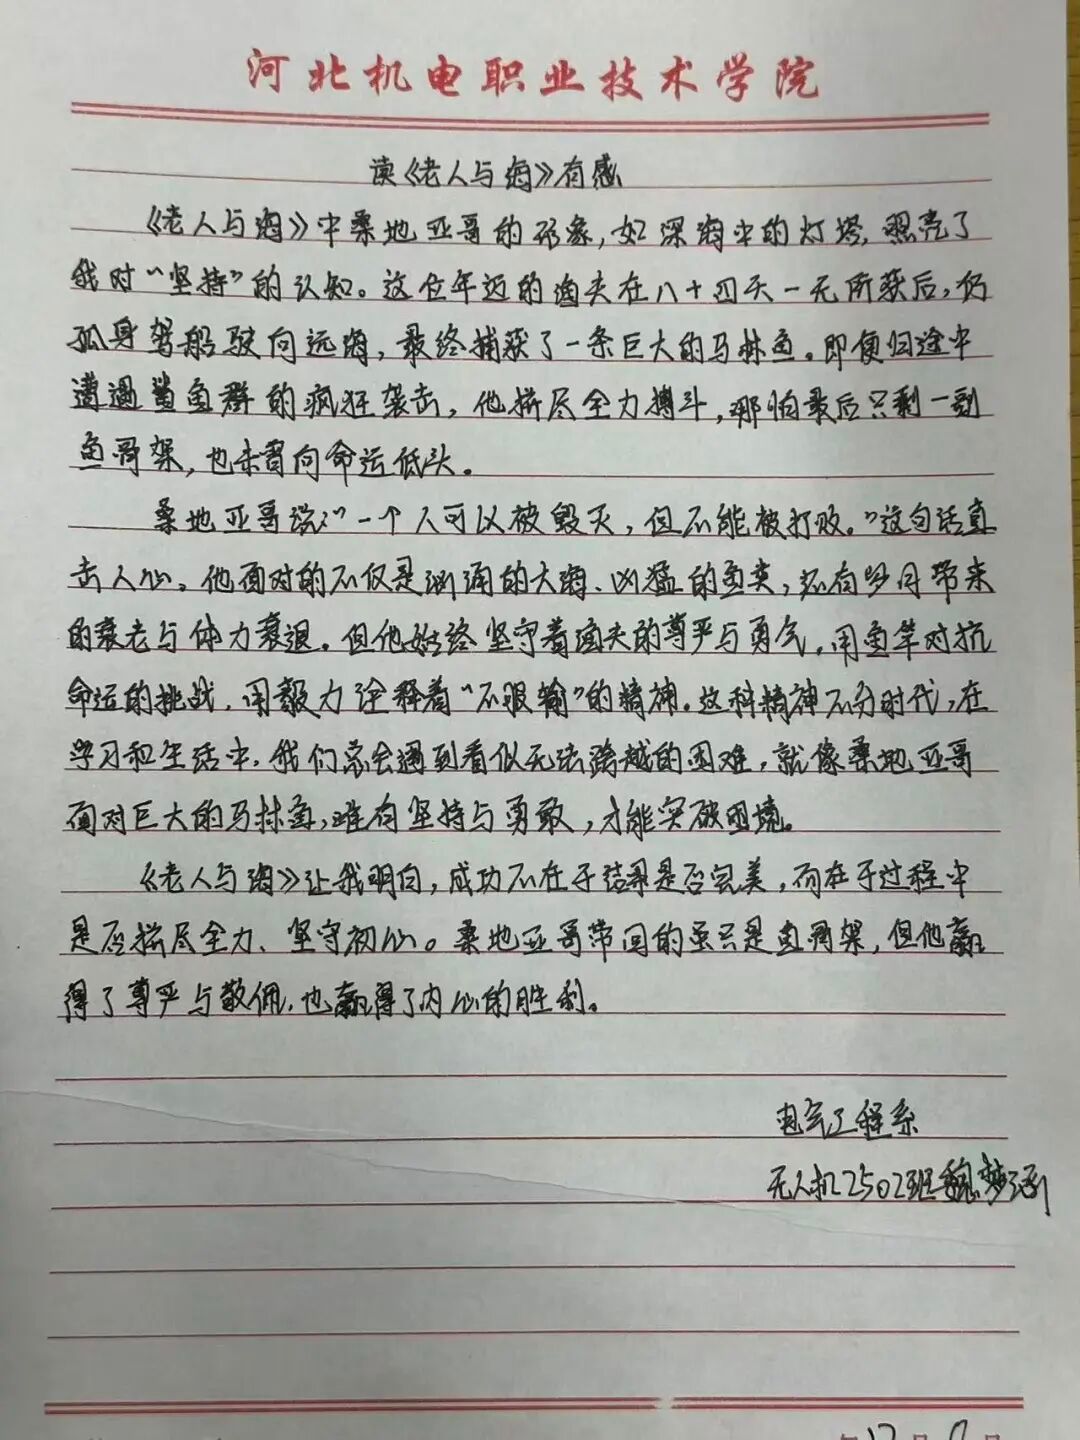 河北机电职业技术学院
读《老人与海》有感
《老人与海》中桑地亚哥的形象，如深海中的灯塔，照亮了
我对“坚持”的认知。这位年迈的渔夫在八十四天一无所获后，仍
孤身驾船驶向远海，最终捕获了一条巨大的马林鱼。即便归途中
遭遇鲨鱼群的疯狂袭击，他拼尽全力搏斗，哪怕最后只剩一副
鱼骨架，也未曾向命运低头。
桑地亚哥说：“一个人可以被毁灭，但不能被打败。”这句话直
击人心。他面对的不仅是汹涌的大海、凶猛的鱼类，还有岁月带来
的衰老与体力衰退。但他始终坚守着渔夫的尊严与勇气，用鱼竿对抗
命运的挑战，用毅力诠释着“不服输”的精神。这种精神不分时代，在
学习和生活中，我们总会遇到看似无法跨越的困难，就像桑地亚哥
面对巨大的马林鱼，唯有坚持与勇敢，才能突破困境。
《老人与海》让我明白，成功不在于结果是否完美，而在于过程中
是否拼尽全力、坚守初心。桑地亚哥带回的虽只是鱼骨架，但他赢
得了尊严与敬佩，也赢得了内心的胜利。
电气工程系
无人机2502班魏梦涵